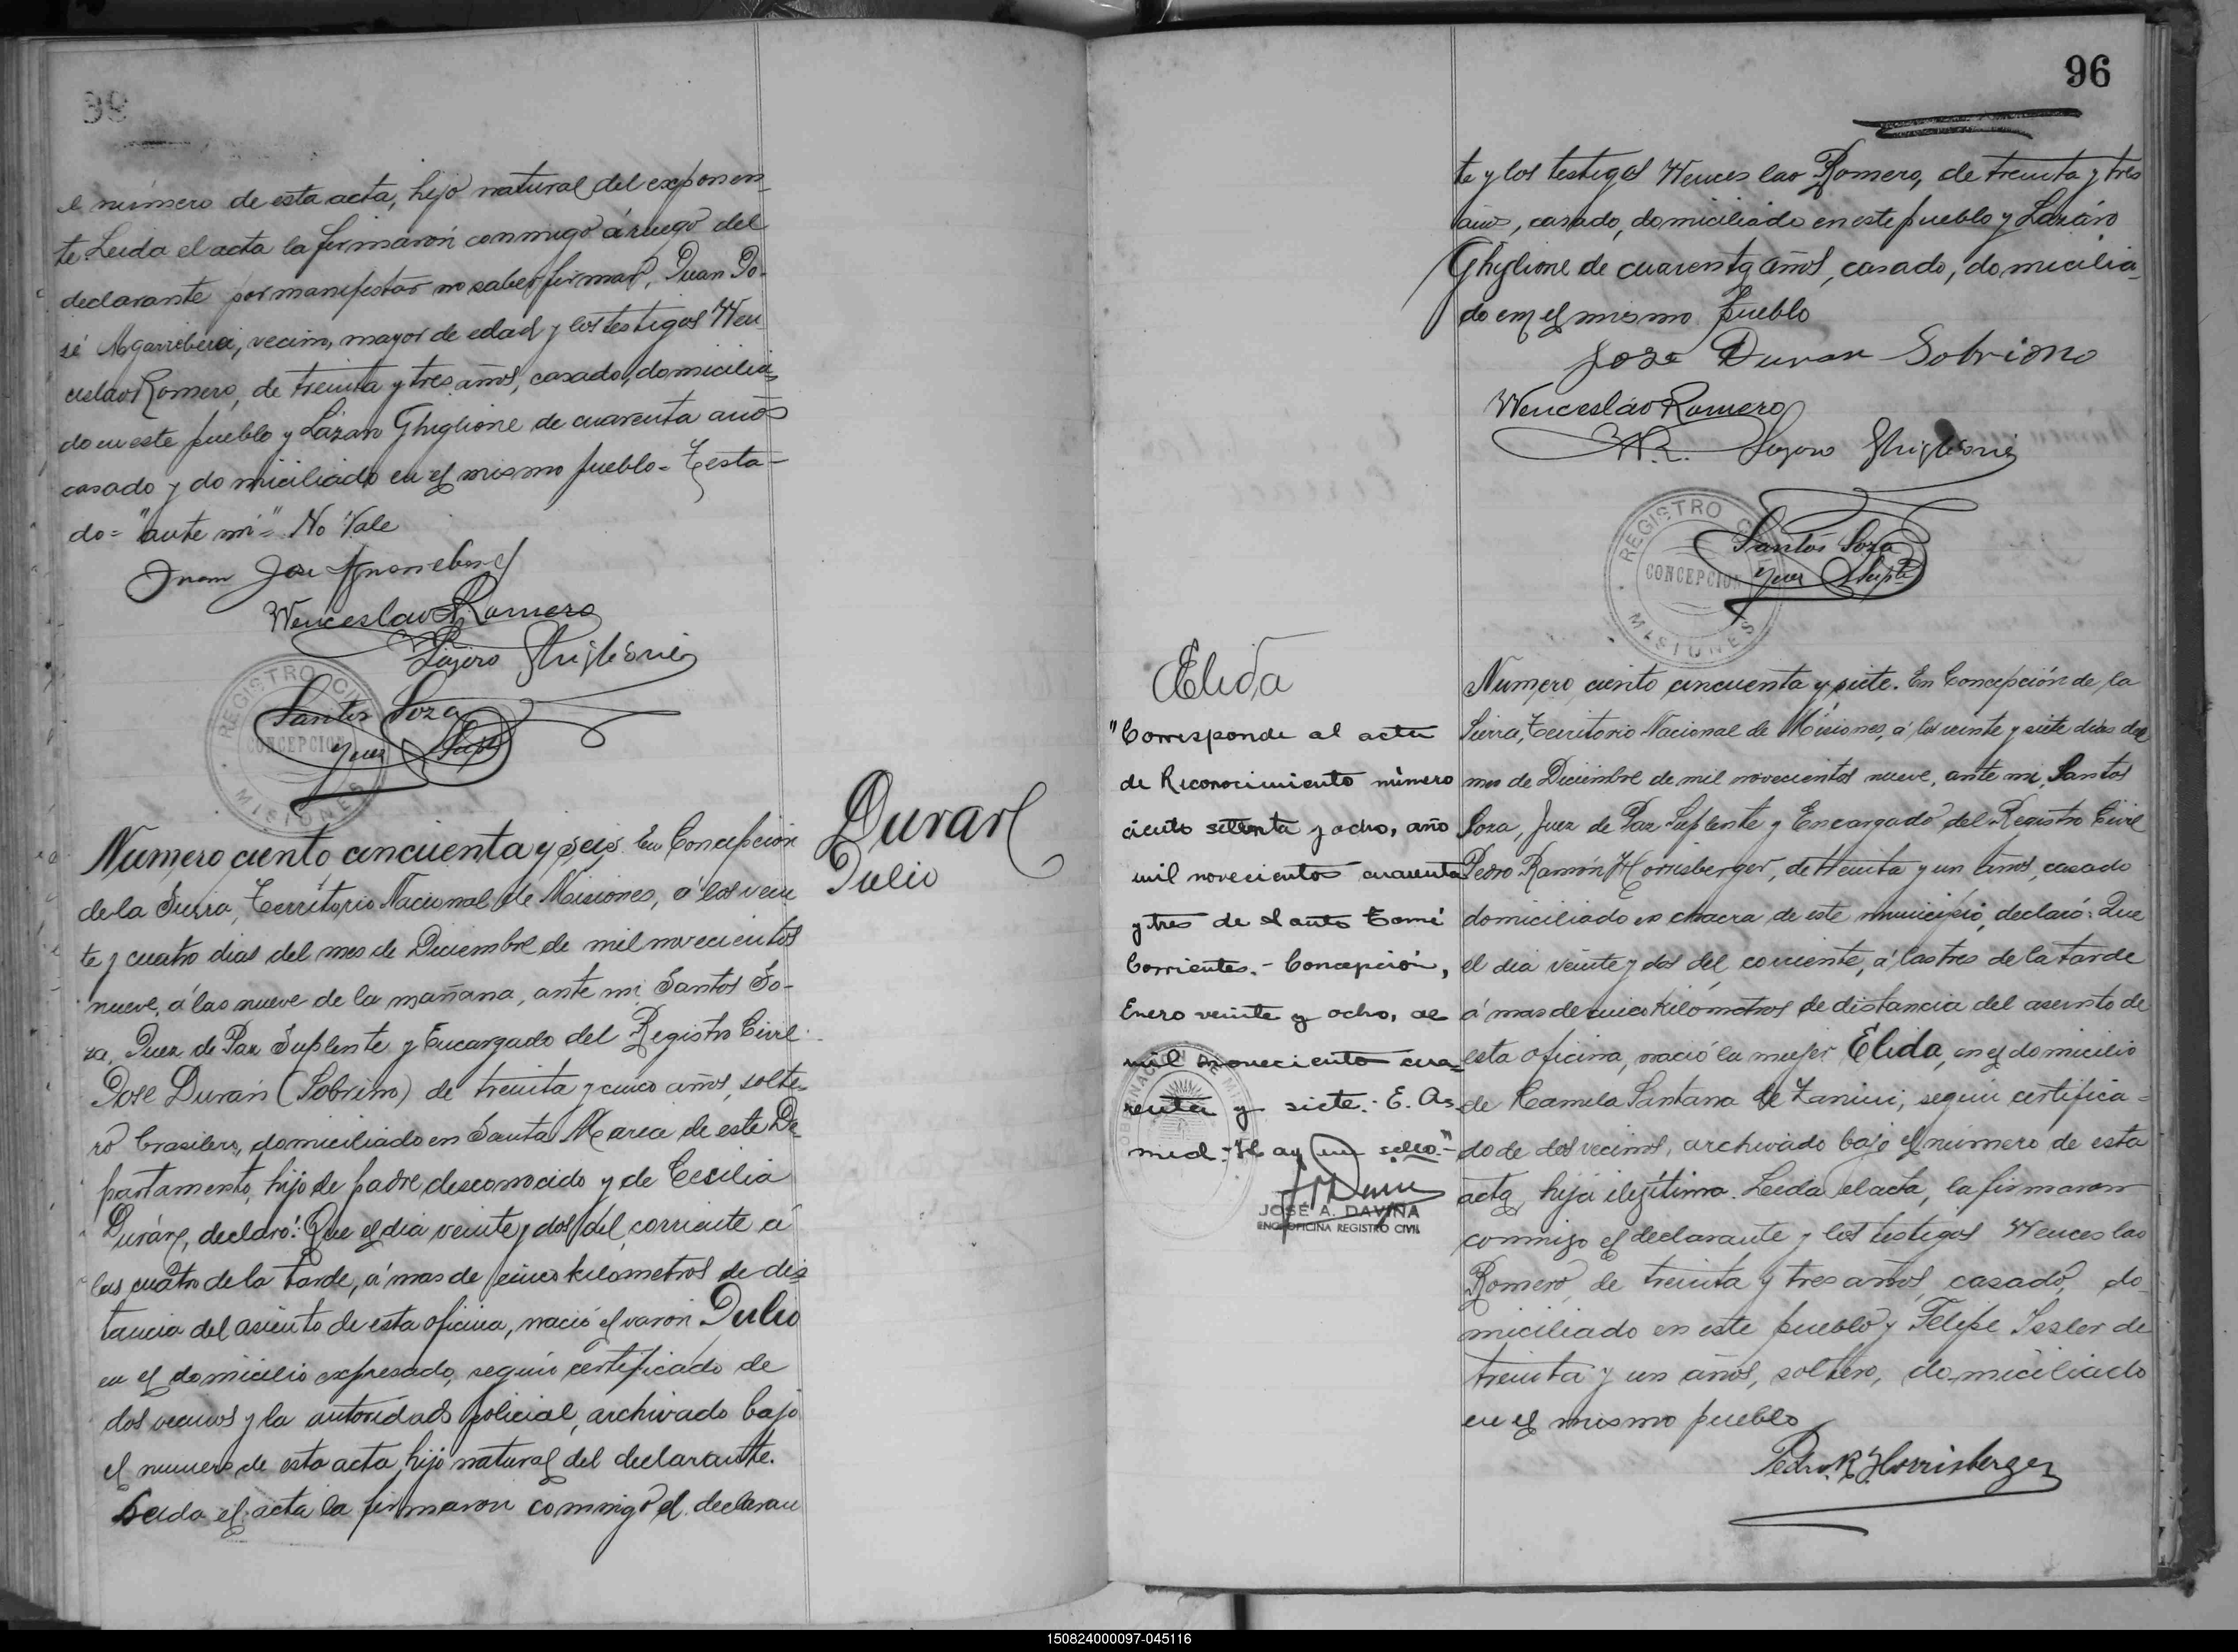 el número de esta acta, hijo natural del exponen-
te. Leida el acta la firmarón conmigo á ruego del
declarante por manifestar no saber firmar, Juan Jo-
sé, vecino, mayor de edad y los testigos Wen
ceslao Romero, de treinta y tres años, casado, domicilia-
do en este pueblo y Lázaro Ghiglione de cuarenta años
casado y domiciliado en el mismo pueblo= Testa-
do= "ante mi"= No Vale
Juan José
Wenceslao Romero
Lázaro Ghiglione
REGISTRO CIVIL
CONCEPCION
MISIONES
Santos Soza
Juez Supte
Numero ciento cincuenta y seis. En Concepción
de la Sierra, Territorio Nacional de Misiones, á los vein
te y cuatro dias del mes de Diciembre de mil novecientos
nueve, á las nueve de la mañana, ante mi Santos So-
za, Juez de Paz Suplente y Encargado del Registro Civil
José Durán (Sobrino) de treinta y cinco años, solte-
ro brasilero, domiciliado en Santa Maria de este De
partamento, hijo de padre desconocido y de Cecilia
Durán, declaró: Que el dia veinte y dos del corriente á
las cuatro de la tarde, á mas de cinco kilometros de dis
tancia del asiento de esta oficina, nació el varón Julio
en el domicilio expresado, según certificado de
dos vecinos y la autoridad policial, archivado bajo
el numero de esta acta, hijo natural del declarante.
Leida el acta la firmaron conmigo el declaran
Duran
Julio
96
te y los testigos Wenceslao Romero, de treinta y tres
años, casado, domiciliado en este pueblo y Lázaro
Ghiglione de cuarenta años, casado, domicilia-
do en el mismo pueblo
Jose Duran Sobrino
Wenceslao Romero
W.R. Lázaro Ghiglione
REGISTRO CIVIL
CONCEPCION
MISIONES
Santos Soza
Juez Supte
Elida
"Corresponde al acta
de Reconocimiento número
ciento setenta y ocho, año
mil novecientos cuarenta
y tres de Santo Tomé
Corrientes.- Concepción,
Enero veinte y ocho, de
mil novecientos cua-
renta y siete.- E. As-
mid.- Hay un sello."-
JOSE A. DAVIÑA
ENC. OFICINA REGISTRO CIVIL
Numero ciento cincuenta y siete. En Concepción de la
Sierra, Territorio Nacional de Misiones, á los veinte y siete dias del
mes de Diciembre de mil novecientos nueve, ante mi, Santos
Soza, Juez de Paz Suplente y Encargado del Registro Civil
Pedro Ramón Horrisberger, de treinta y un años, casado
domiciliado en chacra de este municipio, declaró: Que
el dia veinte y dos del corriente, á las tres de la tarde
á mas de cinco kilómetros de distancia del asiento de
esta oficina, nació la mujer Elida, en el domicilio
de Camela Santana de Zanini, según certifica-
do de dos vecinos, archivado bajo el número de esta
acta, hija ilegítima. Leida el acta, la firmaron
conmigo el declarante y los testigos Wenceslao
Romero, de treinta y tres años, casado, do-
miciliado en este pueblo y Felipe Issler de
treinta y un años, soltero, domiciliado
en el mismo pueblo
Pedro R. Horrisberger
150824000097-045116